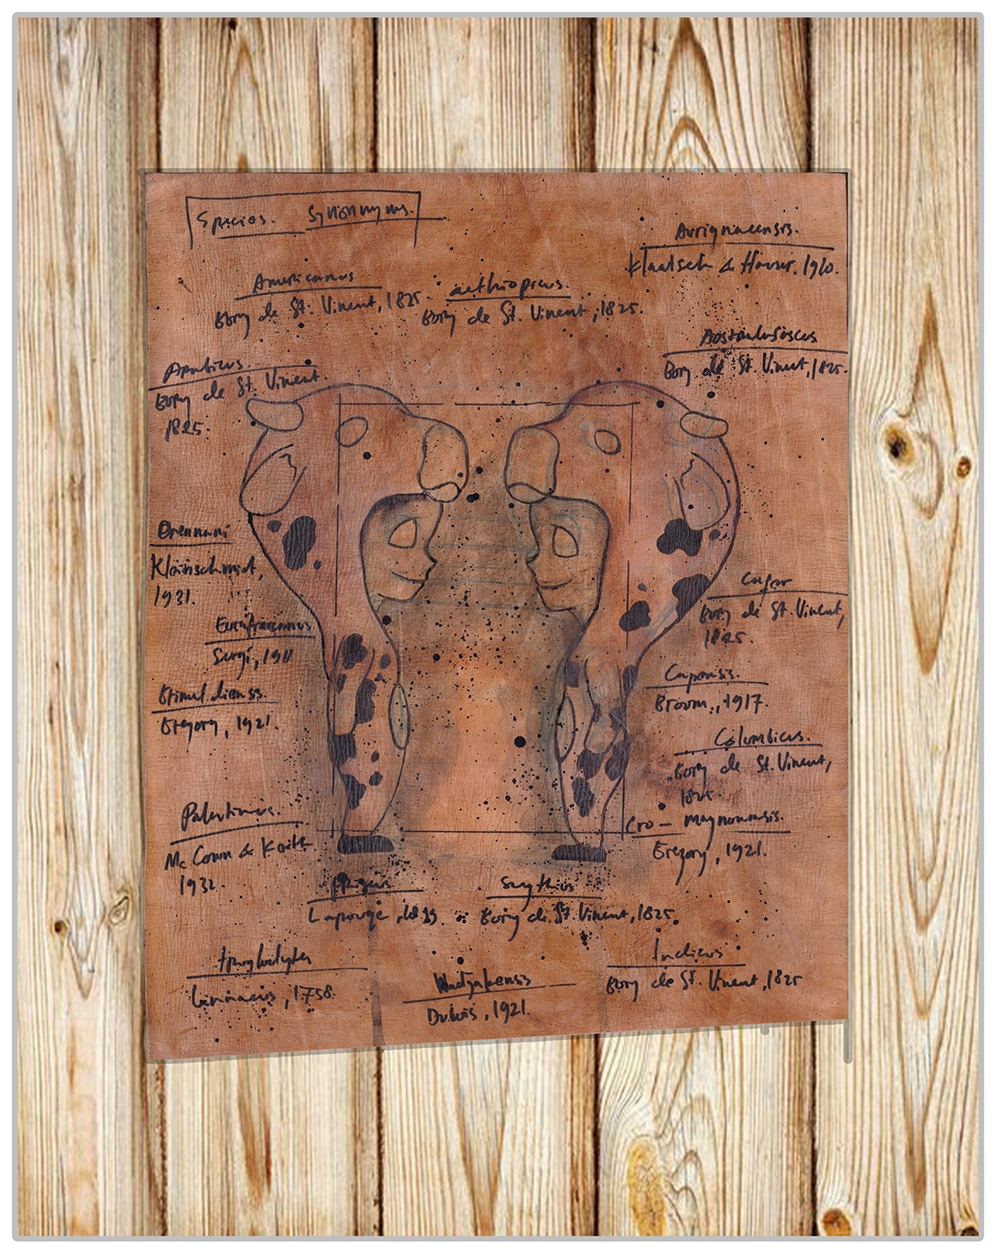 Species. Synonyms.
Aurignacensis.
Klaatsch & Hauser, 1910.
Americanus
Bory de St. Vincent, 1825.
aethiopicus.
Bory de St. Vincent, 1825.
Bory de St. Vincent, 1825.
Arabicus
Bory de St. Vincent
1825.
Drennani
Kleinschmidt,
1931.
Eurafricanus
Sergi, 1911
Grimaldiensis.
Gregory, 1921.
Cafer
Bory de St. Vincent,
1825.
Capensis.
Broom, 1917.
Columbicus.
Bory de St. Vincent,
1825.
Cro-magnonensis.
Gregory, 1921.
Palestinus.
Mc Cown & Keith
1932.
Lapouge, 1899
Scythicus
Bory de St. Vincent, 1825.
troglodytes
Linnaeus, 1758.
Wadjakensis
Dubois, 1921.
Indicus
Bory de St. Vincent, 1825